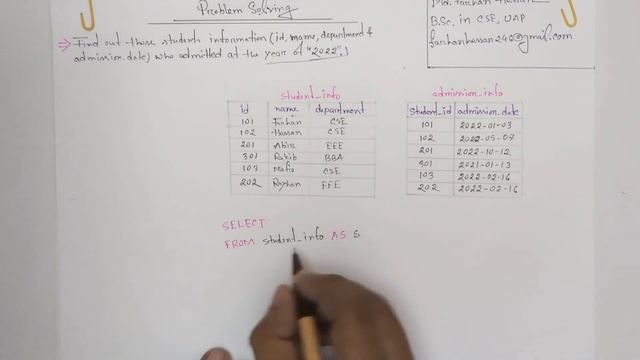 Problem Solving
Md. Farhan Hassan
B.Sc. in CSE, UAP
farhanhassan246@gmail.com
=> Find out those students information (id, name, department &
admission_date) who admitted at the year of "2022".
student_info
id name department
101 Farhan CSE
102 Hassan CSE
201 Abir EEE
301 Rakib BBA
103 Mafiz CSE
202 Rayhan EEE
admission_info
student_id admission_date
101 2022-01-03
102 2022-05-07
201 2022-10-12
301 2021-01-13
103 2022-02-16
202 2022-02-16
SELECT
FROM student_info AS S